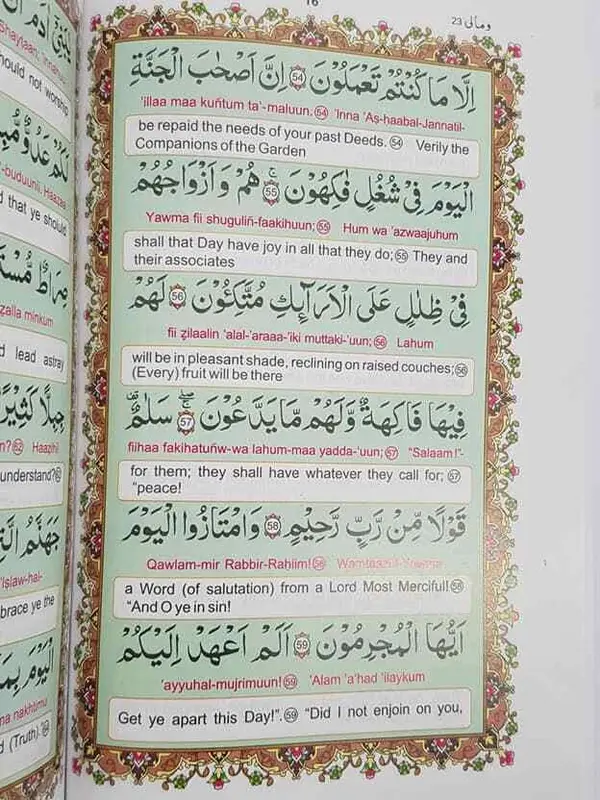 16
ومالی 23
اِلَّا مَا كُنْتُمْ تَعْمَلُوْنَ ۝54 اِنَّ اَصْحٰبَ الْجَنَّةِ
'illaa maa kuñtum ta'-maluun.54 'Inna 'Aṣ-ḥaabal-Jannatil-
be repaid the needs of your past Deeds.54 Verily the
Companions of the Garden
الْيَوْمَ فِيْ شُغُلٍ فٰكِهُوْنَ ۝55 هُمْ وَاَزْوَاجُهُمْ
Yawma fii shuguliñ-faakihuun;55 Hum wa 'azwaajuhum
shall that Day have joy in all that they do;55 They and
their associates
فِيْ ظِلٰلٍ عَلَى الْاَرَآئِكِ مُتَّكِئُوْنَ ۝56 لَهُمْ
fii ẓilaalin 'alal-'araaa-'iki muttaki-'uun;56 Lahum
will be in pleasant shade, reclining on raised couches;56
(Every) fruit will be there
فِيْهَا فَاكِهَةٌ وَّلَهُمْ مَّا يَدَّعُوْنَ ۝57 سَلٰمٌ
fiihaa fakihatuñw-wa lahum-maa yadda-'uun;57 "Salaam!"-
for them; they shall have whatever they call for;57
"peace!
قَوْلًا مِّنْ رَّبٍّ رَّحِيْمٍ ۝58 وَامْتَازُوا الْيَوْمَ
Qawlam-mir Rabbir-Raḥiim!58
a Word (of salutation) from a Lord Most Merciful!58
"And O ye in sin!
اَيُّهَا الْمُجْرِمُوْنَ ۝59 اَلَمْ اَعْهَدْ اِلَيْكُمْ
'ayyuhal-mujrimuun!59 'Alam 'a'had 'ilaykum
Get ye apart this Day!".59 "Did I not enjoin on you,
Shaytaan, innahuu
hould not worship
لَكُمْ عَدُوٌّ مُّبِ
-buduunii, Haazaa
d that ye should
صِرَاطٌ مُّسْتَ
zalla minkum
d lead astray
جِبِلًّا كَثِيْرً
n?62 Haazihii
understand?62
جَهَنَّمُ الَّتِ
'islaw-hal-
brace ye the
الْيَوْمَ بِمَا
na nakhtimu
d (Truth).64